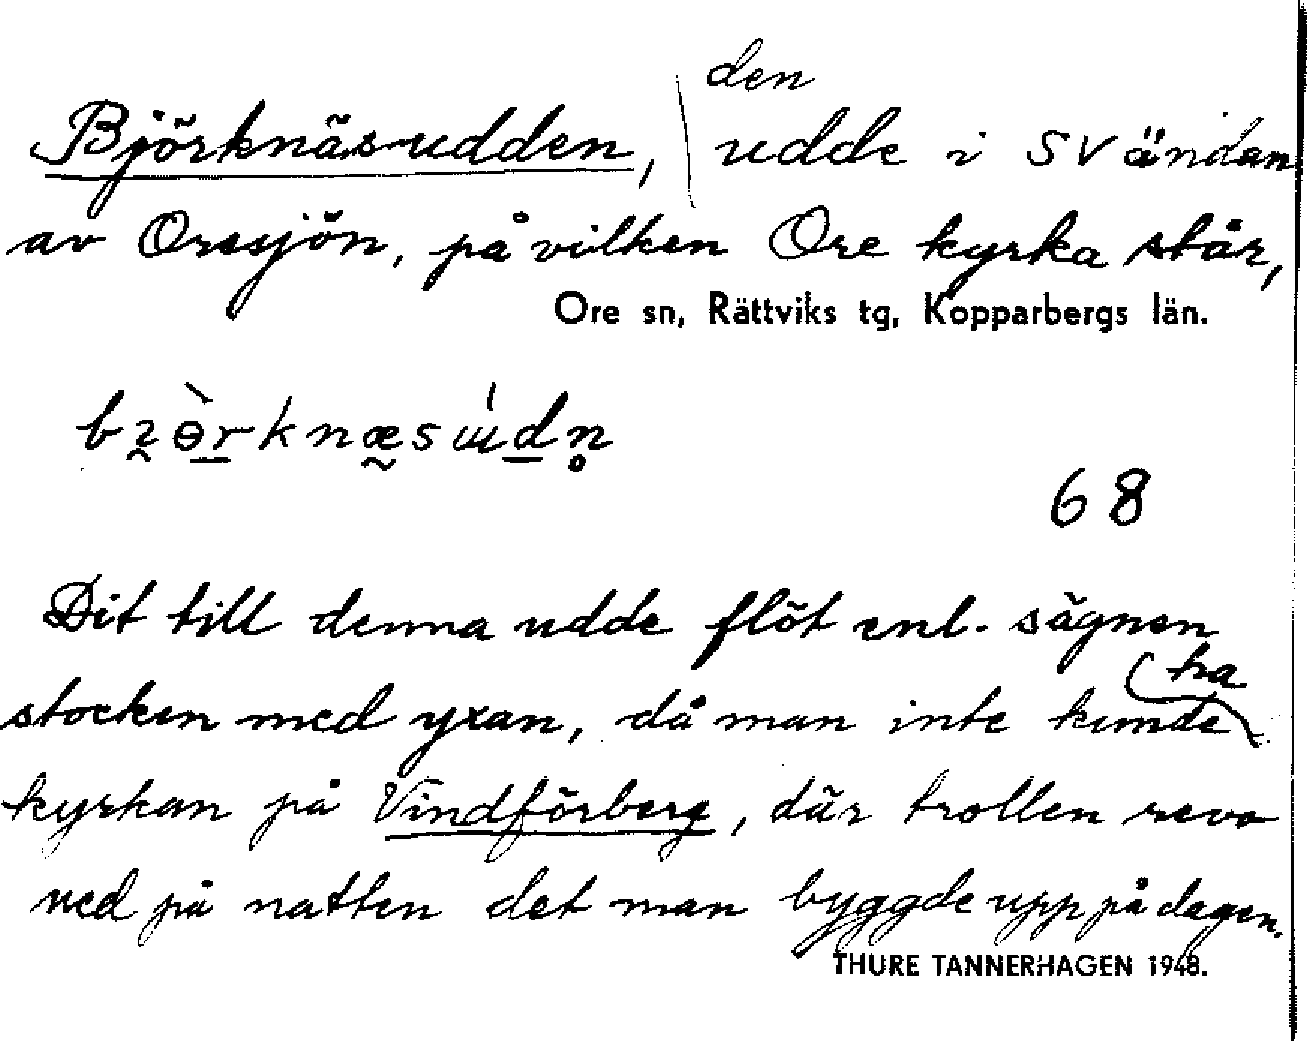 den
Björknäsudden, udde i SV ändan
av Oresjön, på vilken Ore kyrka står,
Ore sn, Rättviks tg, Kopparbergs län.
68
Dit till denna udde flöt enl. sägnen
ha
stocken med yxan, då man inte kunde
kyrkan på Vindförberg, där trollen revo
ned på natten det man byggde upp på dagen.
THURE TANNERHAGEN 1948.